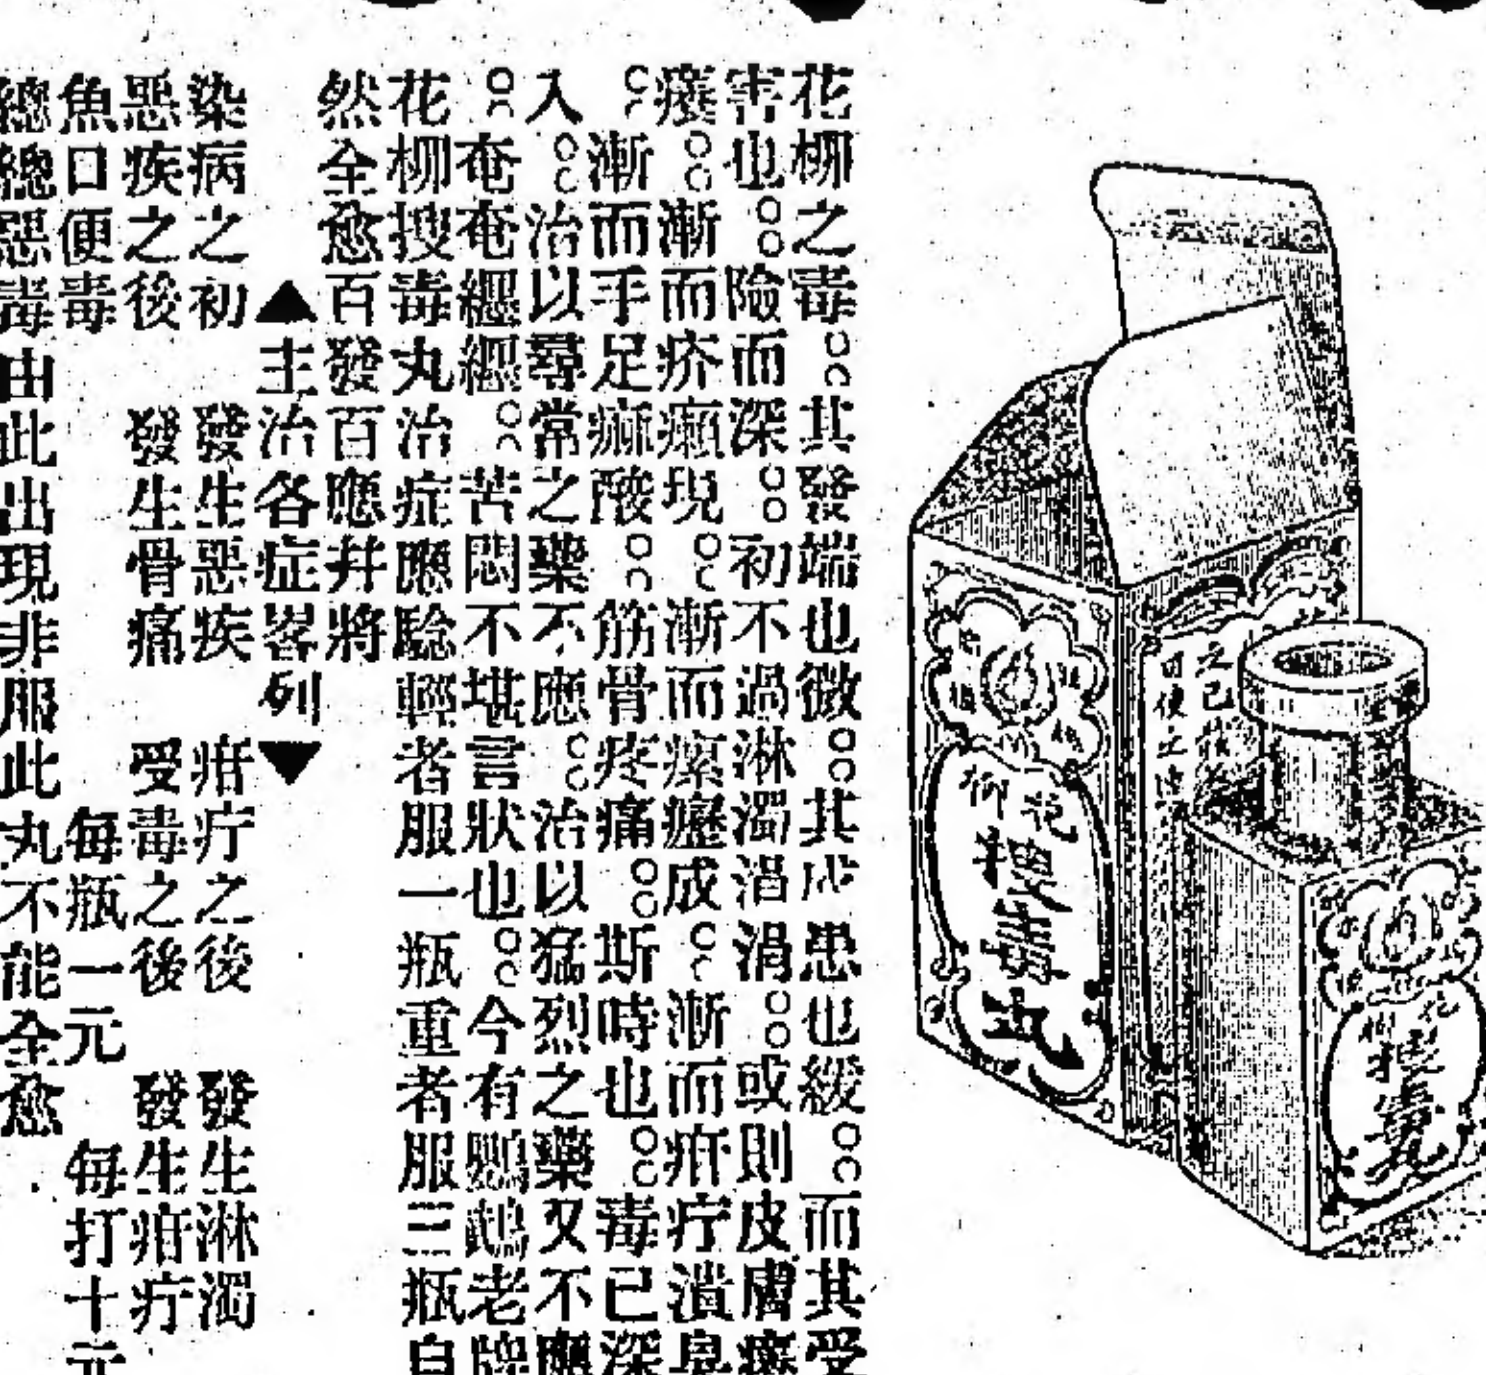 花柳之毒。其發端也微。其成患也緩。而其受
害也。險而深。初不過淋濁涓涓。或則皮膚癢
癢。漸而疥癩現。漸而瘰癧成。漸而疳疔潰鼻
。漸而手足痲酸。筋骨疼痛。斯時也。毒已深
入。治以尋常之藥不應。治以猛烈之藥又不應
。奄奄纒纒。苦悶不堪言狀也。今有鸚鵡老牌
花柳搜毒丸治症應騐輕者服一瓶重者服三瓶自
然全愈百發百應幷將
▲主治各症畧列▼
染病之初 發生惡疾 疳疔之後 發生淋濁
惡疾之後 發生骨痛 受毒之後 發生疳疔
魚口便毒 每瓶一元 每打十元
總總惡毒由此出現非服此丸不能全愈
花柳
搜毒丸
花柳
搜毒丸